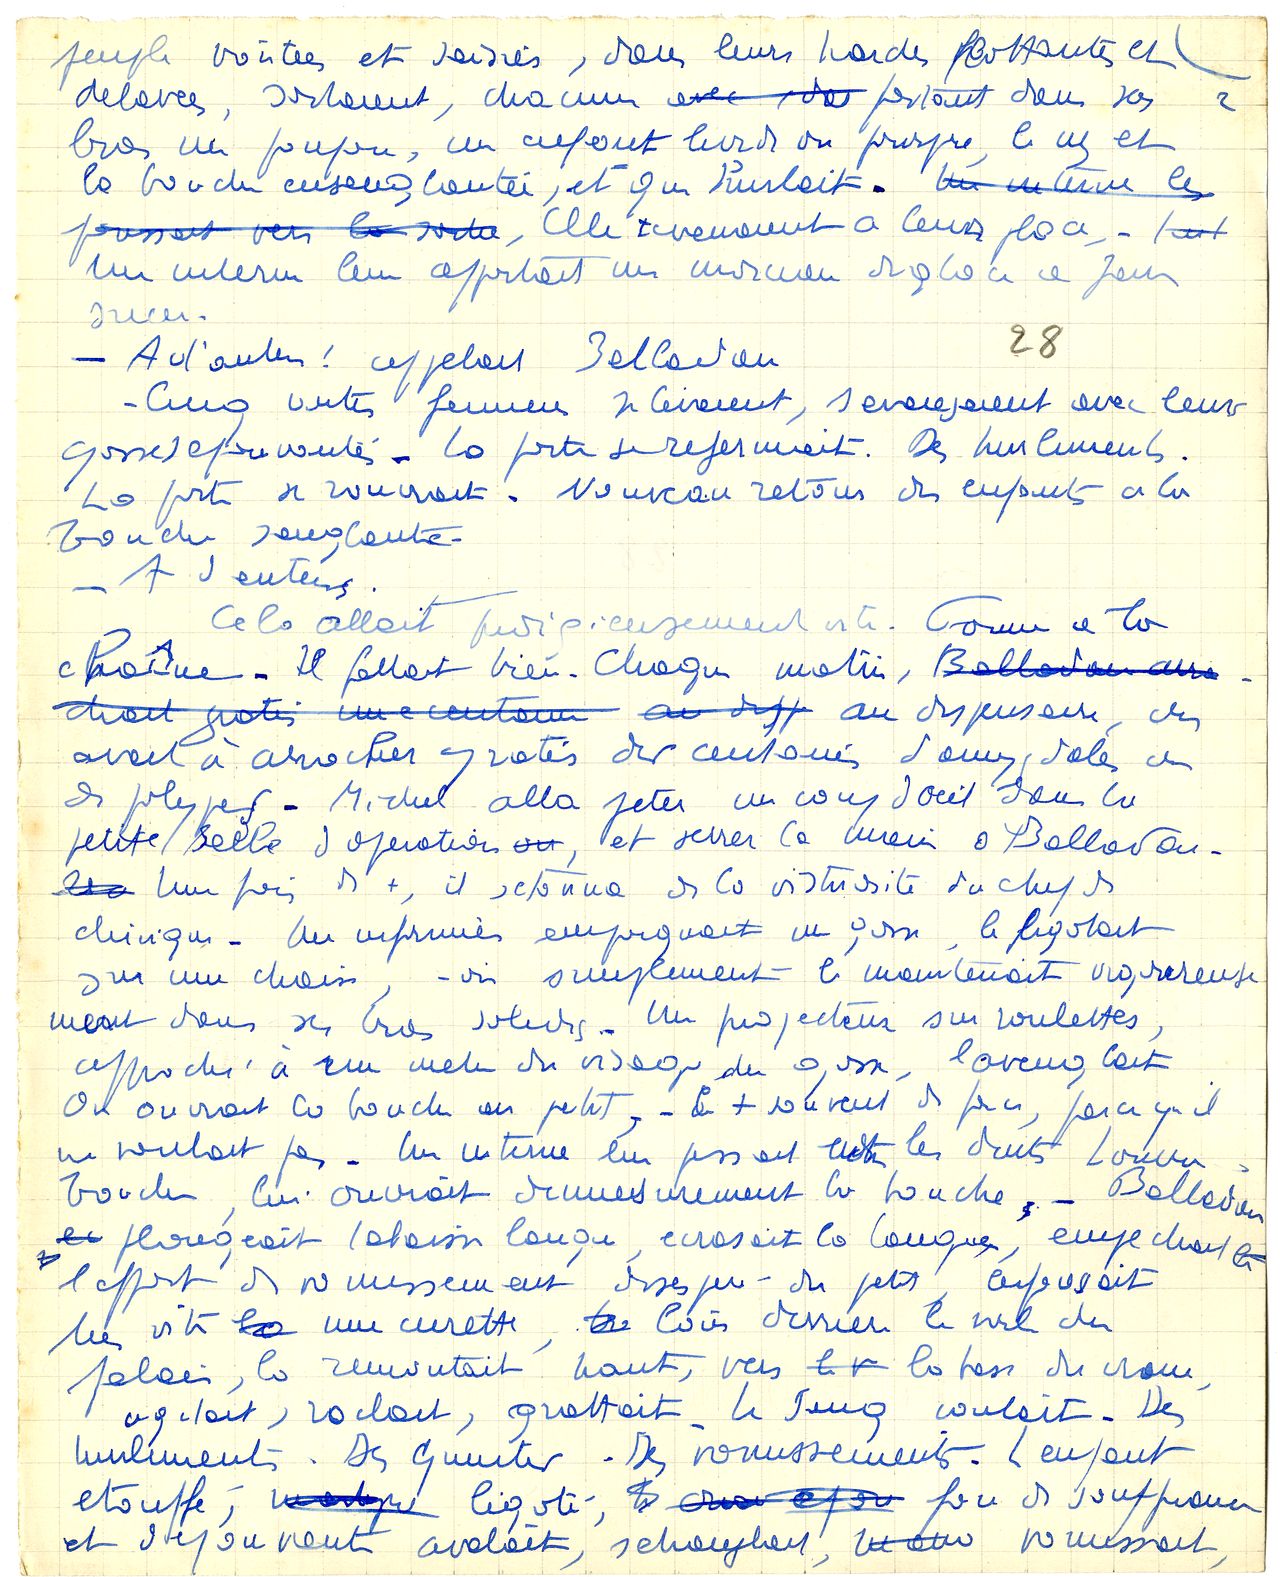 peuple voûtées et , dans leurs hardes flottantes et
délavées, sortaient, chacune avec dans portant dans ses 2
bras un poupon, un enfant lourd ou pourpre, le nez et
la bouche ensanglantée, et qui hurlait. Un interne les
poussait vers la sortie, Elle revenaient a leurs place, -
Un interne leur apportait un morceau de glace a faire
sucer.
— A d'autres ! appelait Balladan 28
- Cinq autres femmes se levaient, s'avançaient avec leurs
gosses épouvantés - La porte se refermait. Des hurlements.
La porte se rouvrait. Nouveau retour des enfants a la
bouche sanglante -
— A d'autres.
Cela allait prodigieusement vite. Comme a la
chaîne - Il fallait bien - Chaque matin, Balladan arra -
chait gratis une centaine au disp au dispensaire, on
avait à arracher gratis des centaines d'amygdales ou
de polypes - Michel alla jeter un coup d'oeil dans la
petite salle d'opération ou, et serrer la main a Balladan -
Une fois de +, il s'étonna de la virtuosité du chef de
clinique - Un infirmier empoignait un gosse, le ligotait
sur une chaise, - ou simplement le maintenait vigoureuse
ment dans ses bras solides - Un projecteur sur roulettes,
approché à un mètre du visage du gosse, l'aveuglait
On ouvrait la bouche au petit, - le + souvent de force, parce qu'il
ne voulait pas - Un interne lui passait entre les dents l'ouvre -
bouche, lui ouvrait démesurément la bouche, - Balladan
et plongeait l'abaisse langue, écrasait la langue, empechait
l'effort de vomissement désespéré du petit, enfonçait
très vite la une curette, loin derrière le voile du
palais, la remontait haut, vers le v la base du crane,
agitait, raclait, grattait - Le sang coulait - Des
hurlements. Des . Des vomissements - L'enfant
étouffé, martyre ligoté, fou de souffrance
et d'épouvante avalait, s'étranglait, vomissait,